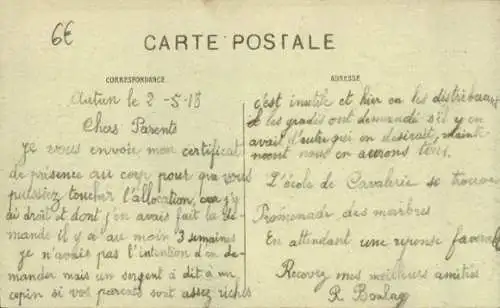 6€
CARTE POSTALE
CORRESPONDANCE
ADRESSE
Autun le 2-5-18
Chers Parents
Je vous envoie mon certificat
de présence au corp pour que vous
puissiez toucher l'allocation, car j'y
ai droit et dont j'en avais fait la de-
mande il y a au moin 3 semaines
je n'avais pas l'intention d'en de-
mander mais un sergent à dit à un
copin si vos parents sont assez riches
c'est inutile et hier on les distribeaus
les gradés ont demandé s'il y en
avait d'autre qui en desirait, maint-
noont nous en aurons tous.
L'école de Cavalerie se trouve
Promenade des marbres
En attendant une reponse favorab
Recevez mes meilleurs amitiés
R.